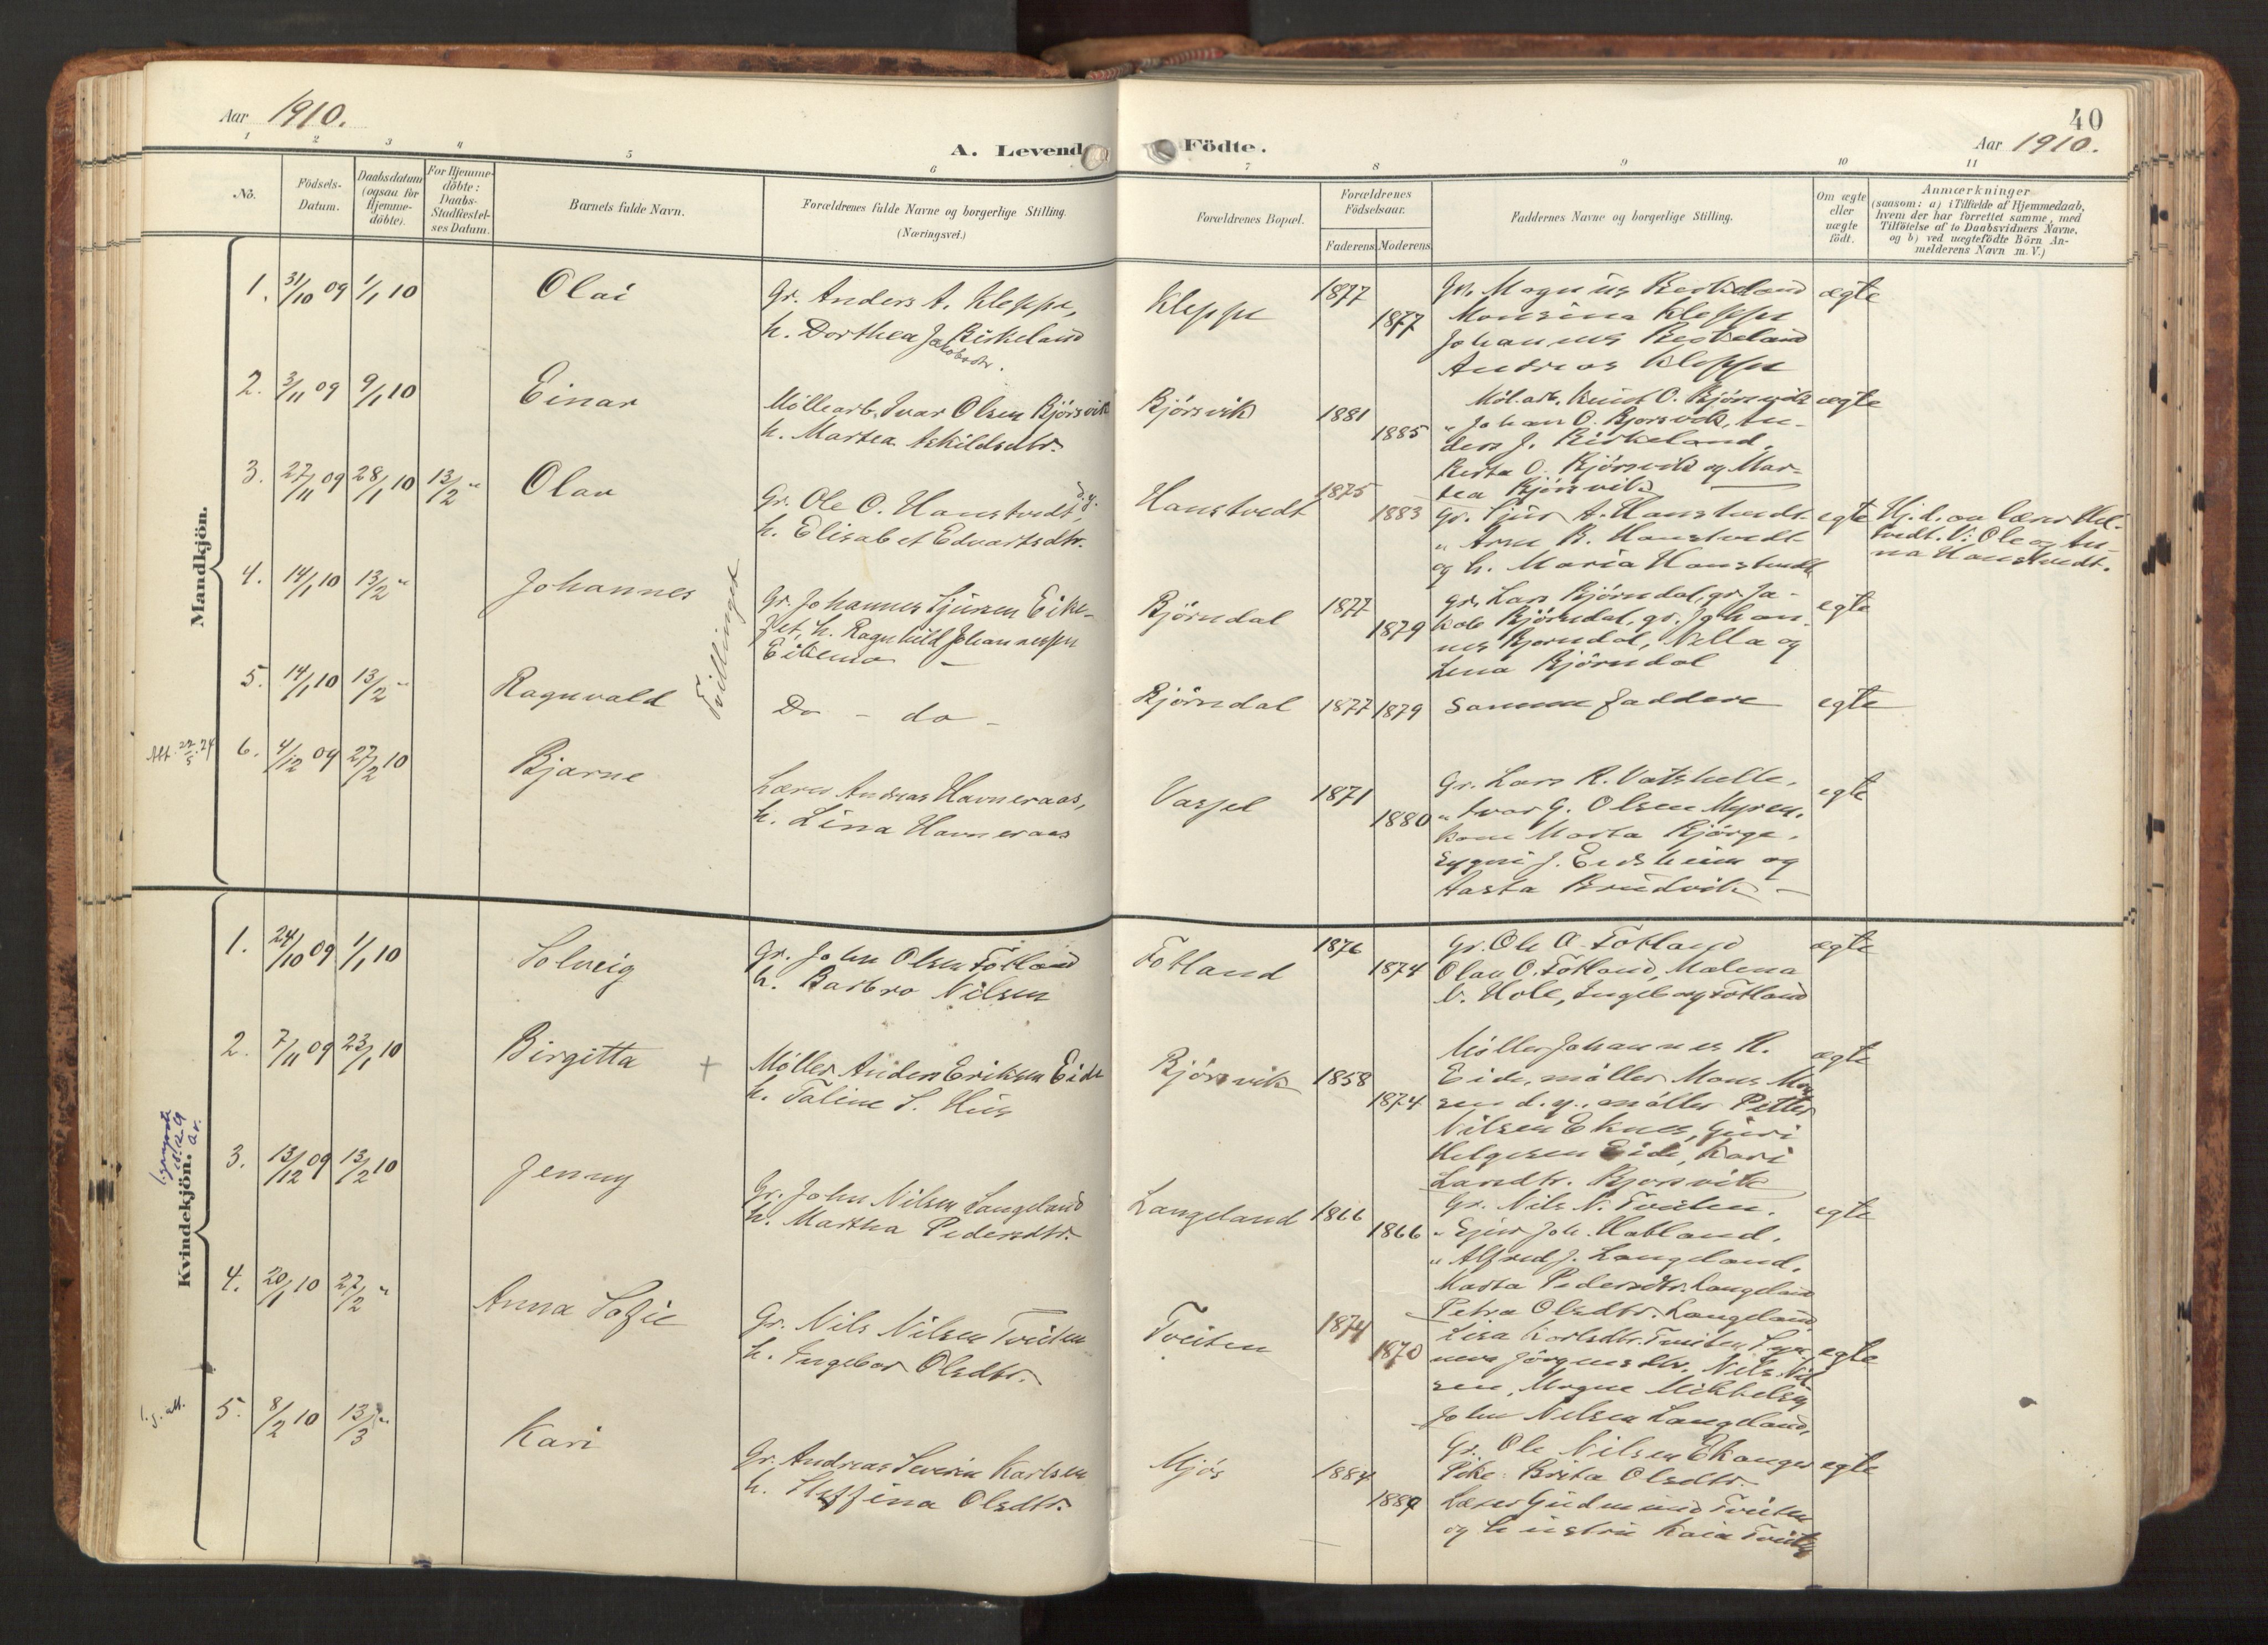 Aar 1910.
A. Levende Födte.
40
Aar 1910.
1 2 3 4 5 6 7 8 9 10 11
No.
Födsels-
Datum.
Daabsdatum
(ogsaa for
Hjemme-
döbte).
For Hjemme-
döbte:
Daabs-
Stadfæstel-
ses Datum.
Barnets fulde Navn.
Forældrenes fulde Navne og borgerlige Stilling.
(Næringsvei.)
Forældrenes Bopæl.
Forældrenes
Födselsaar.
Faderens Moderens
Faddernes Navne og borgerlige Stilling.
Om ægte
eller
uægte
født.
Anmærkninger
(saasom: a) i Tilfælde af Hjemmedaab,
hvem der har forrettet samme, med
Tilföielse af to Daabsvidners Navne,
og b) ved uægtefödte Börn An-
melderens Navn m. V.)
Mandkjön.
1. 31/10 09 1/1 10 Olai
Gr. Anders A. Kleppe,
h. Dorthea Jakobsdtr. Birkeland
Kleppe 1877 1877
Gr. Magnus Birkeland
Monsina Kleppe
Johannes Birkeland
Andreas Kleppe
ægte
2. 3/11 09 9/1 10 Einar
Møllearb. Ivar Olsen Bjørsvik
h. Martea Askildsdtr.
Bjørsvik 1881 1885
Møl.arb. Knut O. Bjørsvik
" Johan O. Bjorsvik, An-
ders J. Birkeland,
Berta O. Bjørsvik og Mar-
tea Bjørsvik
ægte
3. 27/11 09 28/1 10 13/2 " Olav
Gr. Ole O. Hanstvedt d.y.
h. Elisabet Edvartsdtr.
Hanstvedt 1875 1883
Gr. Sjur A. Hanstvedt.
" Arne B. Hanstvedt
og h. Maria Hanstvedt
egte
Hj.d. av lærer
tvedt. V: Ole og An-
na Hanstvedt.
4. 14/1 10 13/2 " Johannes
Tvillinger
Gr. Johannes Sjursen Eike-
h. Ragnhild Johannesdtr.
Eikemo
Bjørndal 1877 1879
gr. Lars Bjørndal, gr. Ja-
kob Bjørndal, gr. Johan-
nes Bjorndal, Nella og
Lena Bjørndal
egte
5. 14/1 10 13/2 " Ragnvald
Do - do -
Bjørndal 1877 1879
Samme faddere
egte
Att. 22/5 24
6. 4/12 09 27/2 10 Bjarne
Lærer Andreas Havneraas,
h. Lina Havneraas
Vassel 1871 1880
Gr. Lars R. Vatshelle,
" Ivar G. Olsen Myren,
kone Marta Bjørge,
J. Eidsheim og
Aasta Brudvik
egte
Kvindekjön.
1. 24/10 09 1/1 10 Solveig
Gr. John Olsen Fotland
h. Barbro Nilsen
Fotland 1876 1874
Gr. Ole A. Fotland
Olav O. Fotland, Malena
N. Hole, Ingeborg Fotland
ægte
2. 7/11 09 23/1 10 Birgitta +
Møller Anders Eriksen Eide
h. Taline S. Hus
Bjørsvik 1858 1874
Møller Johannes H.
Eide, møller Mons Mon-
sen d.y., møller Petter
Nilsen Eknes, Guri
Helgesen Eide, Kari
Larsdtr. Bjorsvik
ægte
3. 13/12 09 13/2 10 Jenny
Gr. John Nilsen Langeland
h. Martha Pedersdtr.
Langeland 1866 1866
Gr. Nils N. Tveiten.
" Sjur Joh. Habland.
" Alfred J. Langeland.
Marta Pedersdtr. Langeland
Petra Olsdtr. Langeland
egte
4. 20/1 10 27/2 " Anna Sofie
Gr. Nils Nilsen Tveiten
h. Ingebor Olsdtr.
Tveiten 1874 1870
Lisa Karlsdtr. Tveiten,
Jörgensdtr. Nils Nil-
sen, Magne Mikkelsen
John Nilsen Langeland,
egte
5. 8/2 10 13/3 " Kari
Gr. Andreas Severin Karlsen
h. Steffina Olsdtr.
Mjøs 1884 1889
Gr. Ole Nilsen Ekanger
Pike: Brita Olsdtr.
Lærer Gudmund Tveiten
og hustru Kaia Tveiten
egte